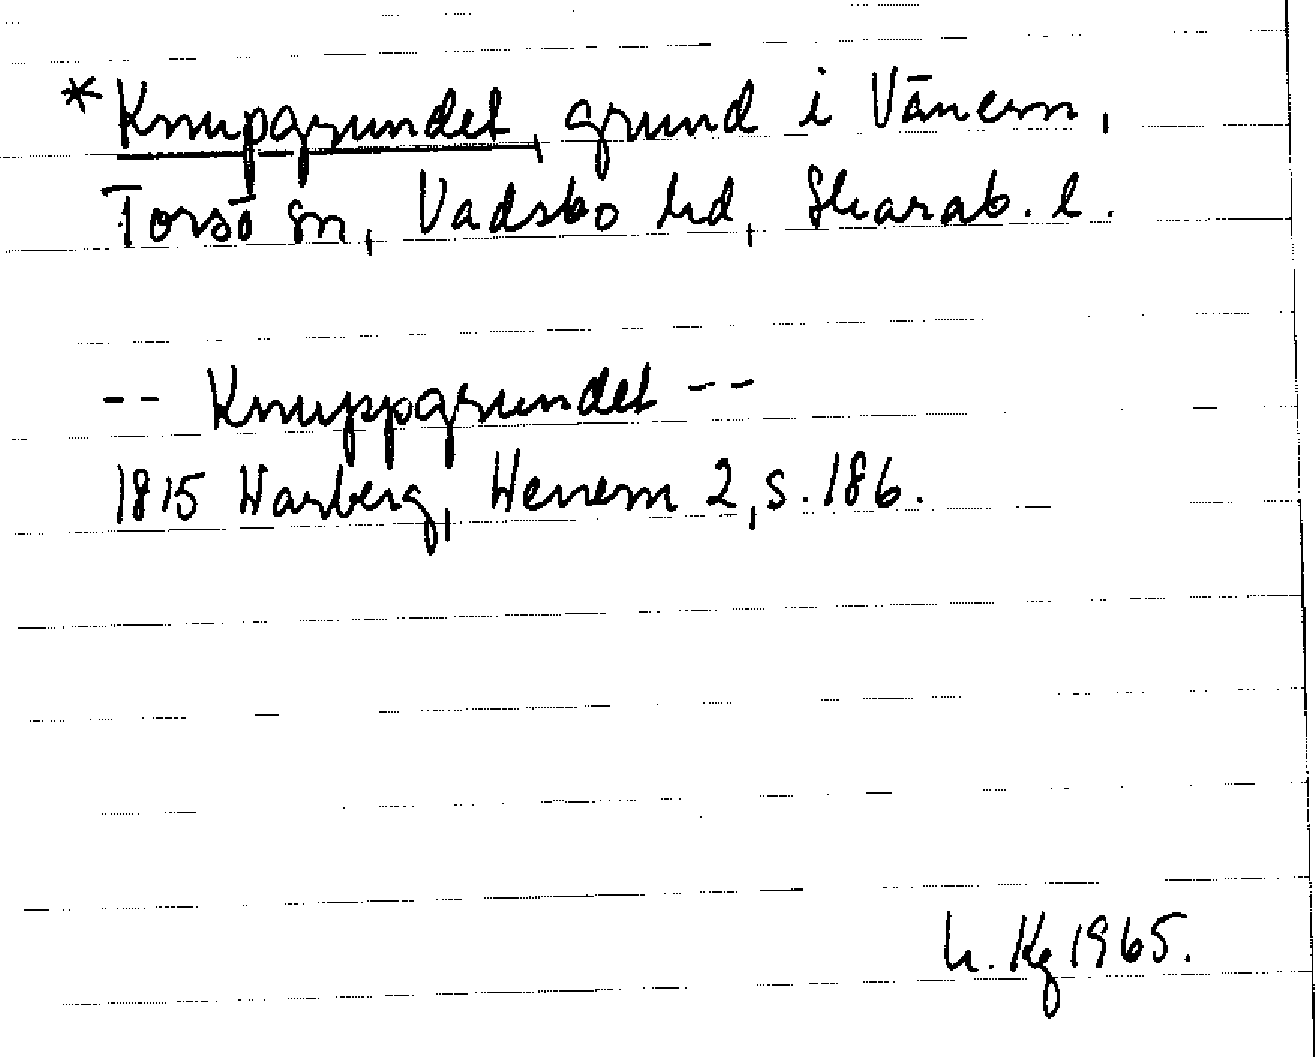 *Knupgrundet, grund i Vänern,
Torsö sn, Vadsbo hd, Skarab. l.
-- Knuppgrundet --
1815 Warberg, Wenern 2, s. 186.
h. Kg 1965.